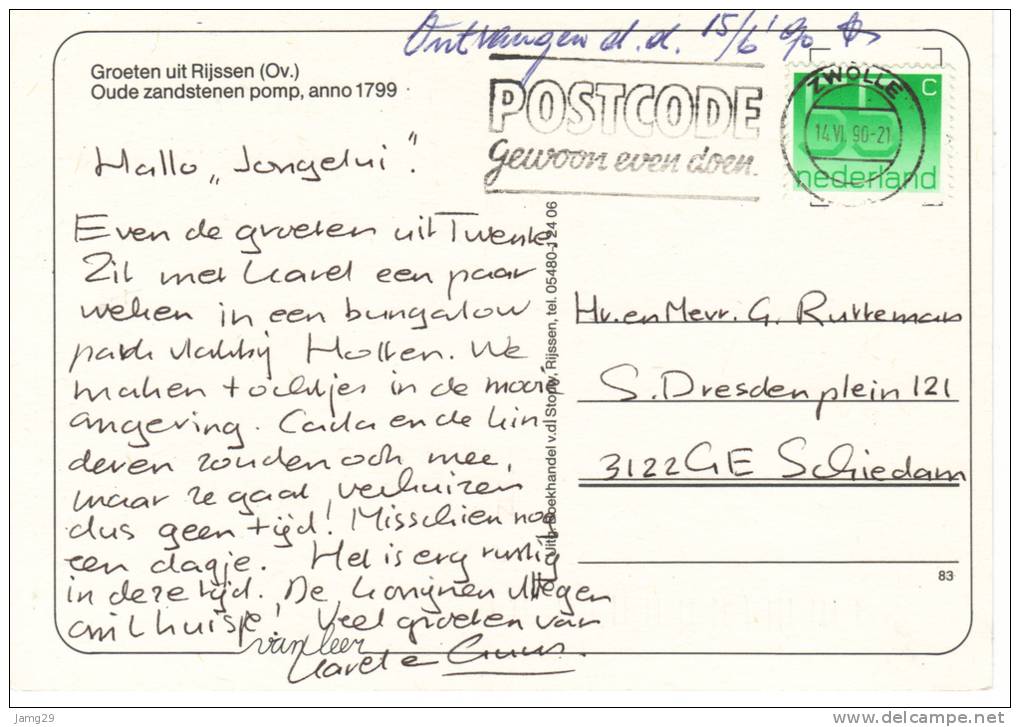 Ontvangen d.d. 15/6 '90
Groeten uit Rijssen (Ov.)
Oude zandstenen pomp, anno 1799
POSTCODE
Gewoon even doen.
ZWOLLE
14.VI.90-21
55 C
nederland
Hallo „Jongelui".
Even de groeten uit Twente.
Zit met Karel een paar
weken in een bungalow
park vlakbij Holten. We
maken tochtjes in de mooie
omgeving. Carla en de kin
deren zouden ook mee,
maar ze gaat verhuizen
dus geen tijd! Misschien nog
een dagje. Het is erg rustig
in deze tijd. De konijnen vliegen
om 't huisje! Veel groeten van
Karel en Guus.
van leer
Uitg. Boekhandel v.d. Stouw, Rijssen, tel. 05480-1 24 06
Hr. en Mevr. G. Rutteman
S. Dresdenplein 121
3122GE Schiedam
83
Jamg29
delcampe.net